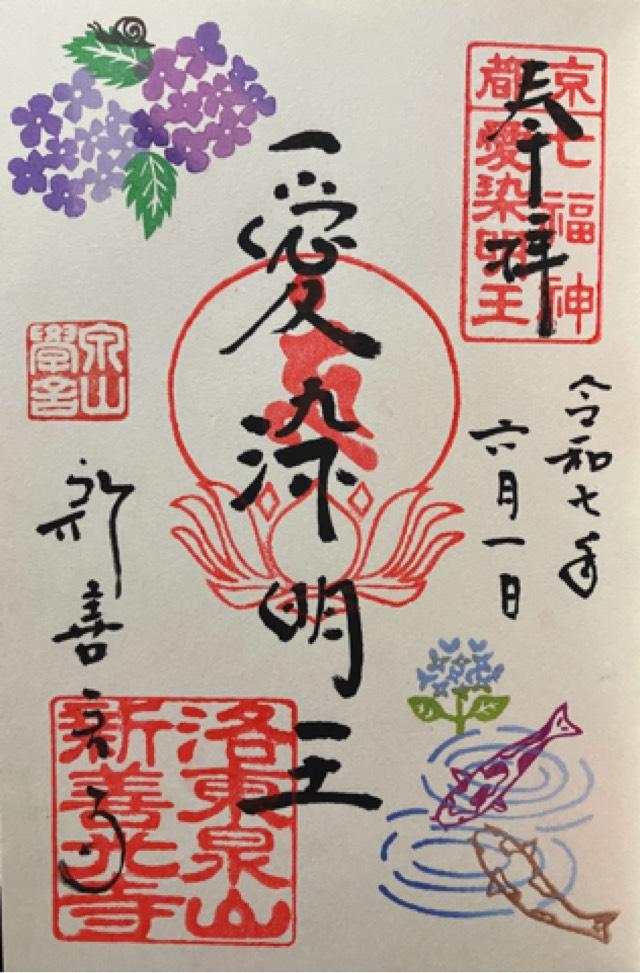 奉拝
京都
七福神
愛染明王
令和七年
六月一日
愛染明王
泉山
學舍
新善光寺
洛東泉山
新善光寺